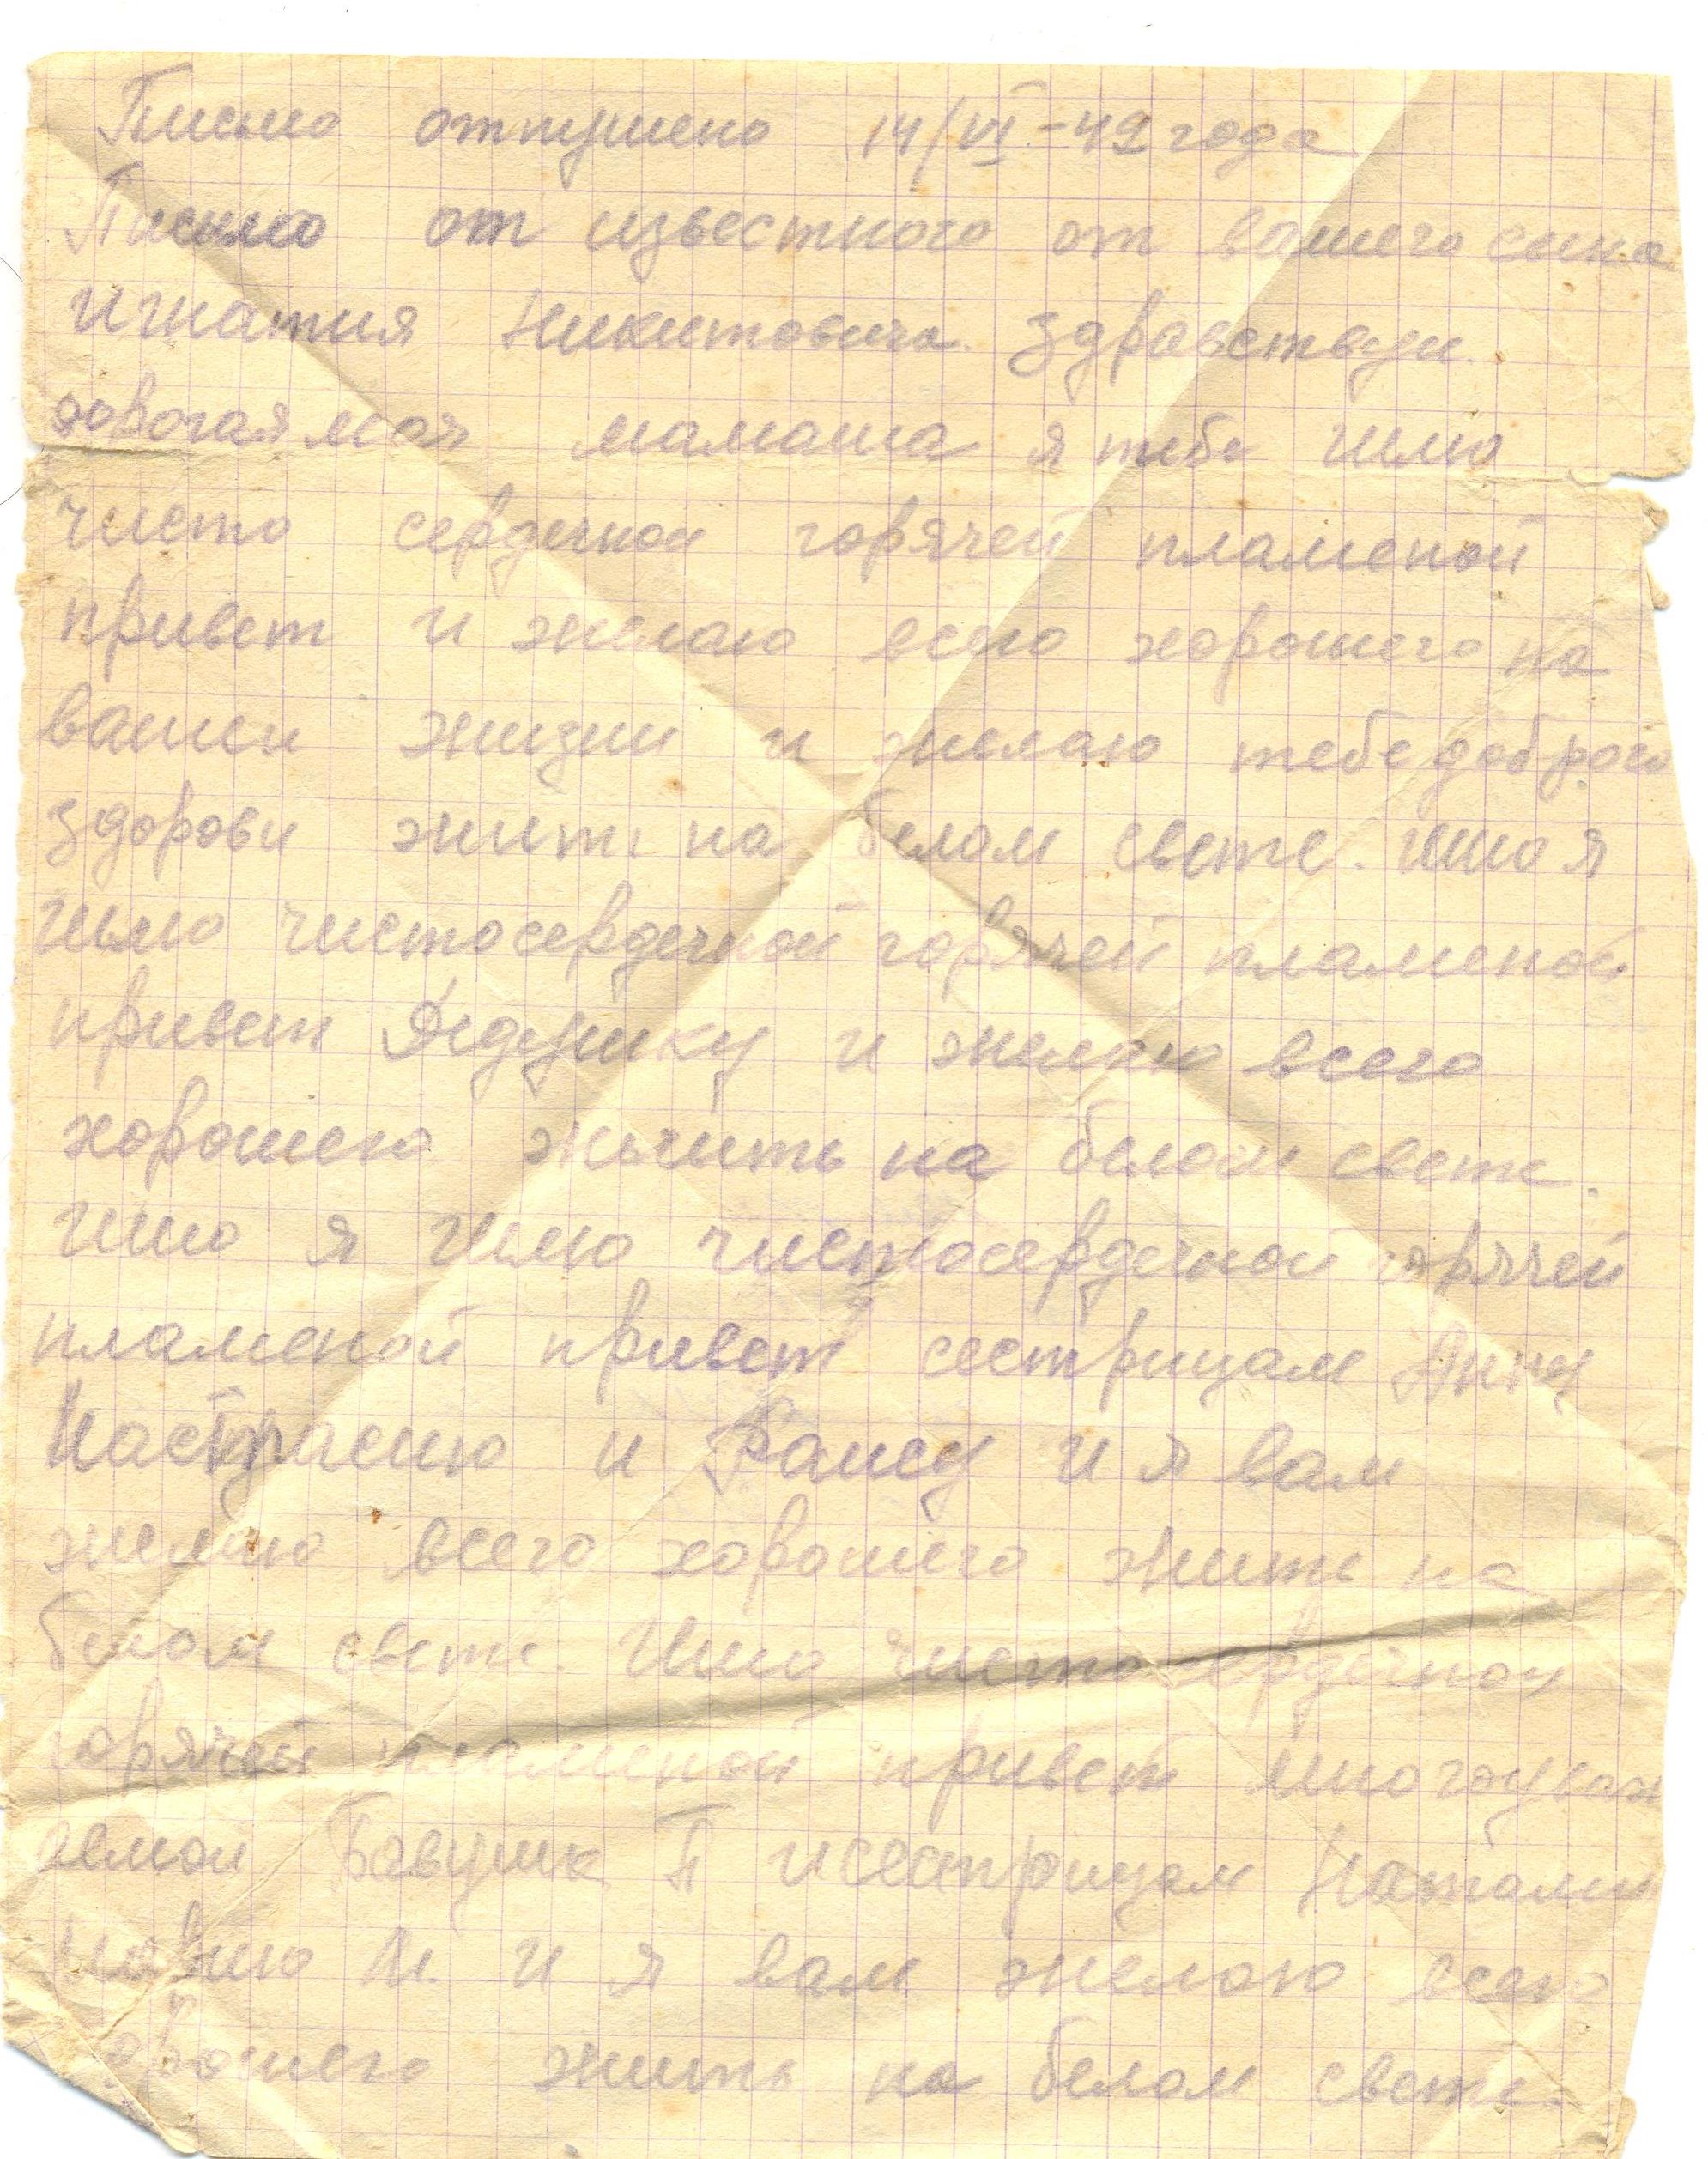 Письмо отпушено 14/VI-42 года
Письмо от известного от вашего сына
Игнатия Никитовича. Здравствуи.
дорогая моя мамаша я тебе шлю
чисто сердечной горячей пламеной
привет и желаю всего хорошего на
вашеи жизни и желаю тебе доброго
здорови жить на белом свете. ишо я
шлю чистосердечной горячей пламеной
привет Дедушку и желаю всего
хорошего жить на белом свете.
ишо я шлю чистосердечной горячей
пламеной привет сестрицам Анну
Настасию и Раису и я вам
желаю всего хорошего жить на
белом свете. Ишо чистосердечной
горячей пламеной привет многоуваж
аемой Бавушк П и сестрицам Наталию
М. и я вам желаю всего
хорошего жить на белом свете.